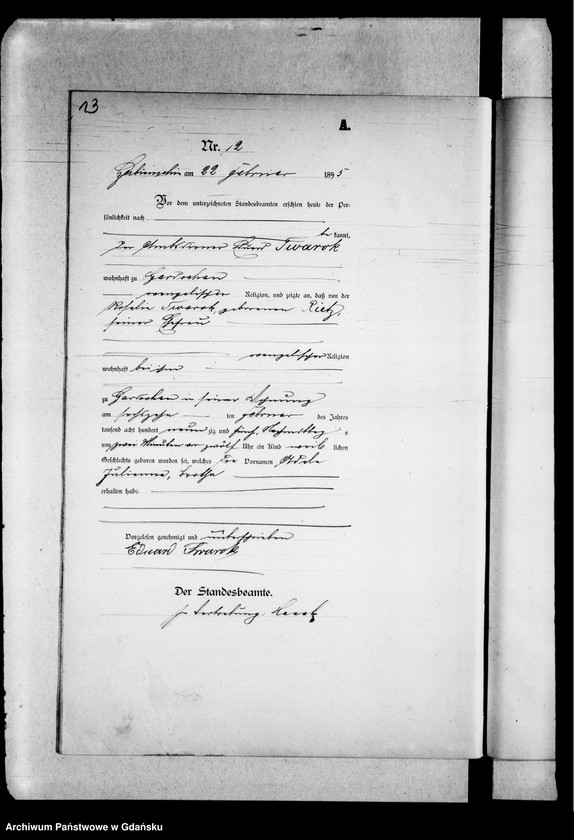 13
A.
Nr. 12
am 22 Februar 1895
Vor dem unterzeichneten Standesbeamten erschien heute der Per-
sönlichkeit nach
be kannt,
der Amtsdiener Eduard Twarok
wohnhaft zu
evangelischer Religion, und zeigte an, daß von der
Rosalie Twarok geborenen Rietz,
seiner Ehefrau
evangelischer Religion
wohnhaft bei ihm
zu in seiner Wohnung
am sechszehn ten Februar des Jahres
tausend acht hundert neun zig und fünf, Nachmittag s
um zwei Minuten vor zwölf Uhr ein Kind weib lichen
Geschlechts geboren worden sei, welches die Vornamen
Julianna, Bertha
erhalten habe.
Vorgelesen genehmigt und unterschrieben
Eduard Twarok
Der Standesbeamte.
In Vertretung:
Archiwum Państwowe w Gdańsku